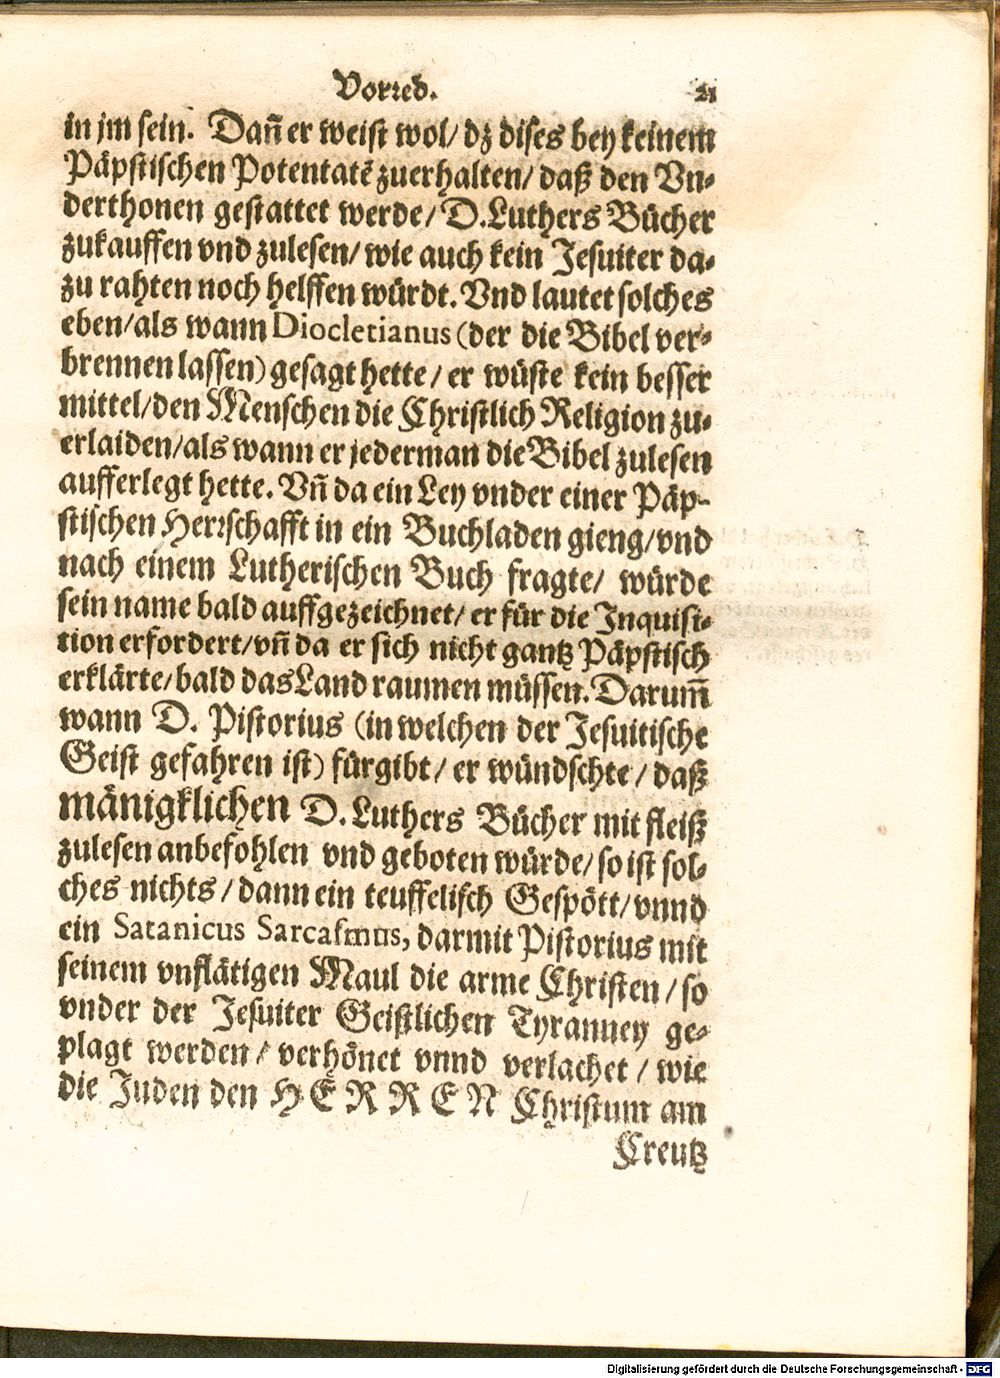 Vorred. 21
in jm sein. Dañ er weist wol/ dz dises bey keinem
Päpstischen Potentatẽ zuerhalten/ daß den Vn-
derthonen gestattet werde/ D. Luthers Bücher
zukauffen vnd zulesen/ wie auch kein Jesuiter da-
zu rahten noch helffen würdt. Vnd lautet solches
eben/ als wann Diocletianus (der die Bibel ver-
brennen lassen) gesagt hette/ er wüste kein besser
mittel/ den Menschen die Christlich Religion zu-
erlaiden/ als wann er jederman die Bibel zulesen
aufferlegt hette. Vñ da ein Ley vnder einer Päp-
stischen Herrschafft in ein Buchladen gieng/ vnd
nach einem Lutherischen Buch fragte/ würde
sein name bald auffgezeichnet/ er für die Inquisi-
tion erfordert/ vñ da er sich nicht gantz Päpstisch
erklärte/ bald das Land raumen müssen. Darum̃
wann D. Pistorius (in welchen der Jesuitische
Geist gefahren ist) fürgibt/ er wündschte/ daß
mänigklichen D. Luthers Bücher mit fleiß
zulesen anbefohlen vnd geboten würde/ so ist sol-
ches nichts/ dann ein teuffelisch Gespött/ vnnd
ein Satanicus Sarcasmus, darmit Pistorius mit
seinem vnflätigen Maul die arme Christen/ so
vnder der Jesuiter Geistlichen Tyranney ge-
plagt werden/ verhönet vnnd verlachet/ wie
die Juden den HERREN Christum am
Creutz
Digitalisierung gefördert durch die Deutsche Forschungsgemeinschaft - DFG